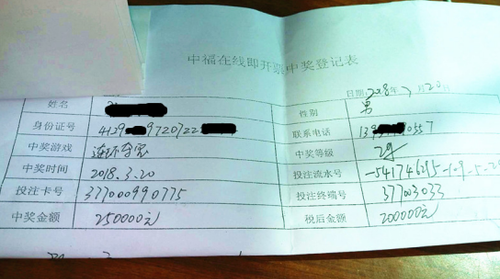 中福在线即开票中奖登记表
日期: 2018年7月20日
姓名 性别 男
身份证号 4129 9720722 联系电话
中奖游戏 连环夺宝 中奖等级
中奖时间 2018.3.20 投注流水号
投注卡号 377000990775 投注终端号
中奖金额 250000元 税后金额 200000元